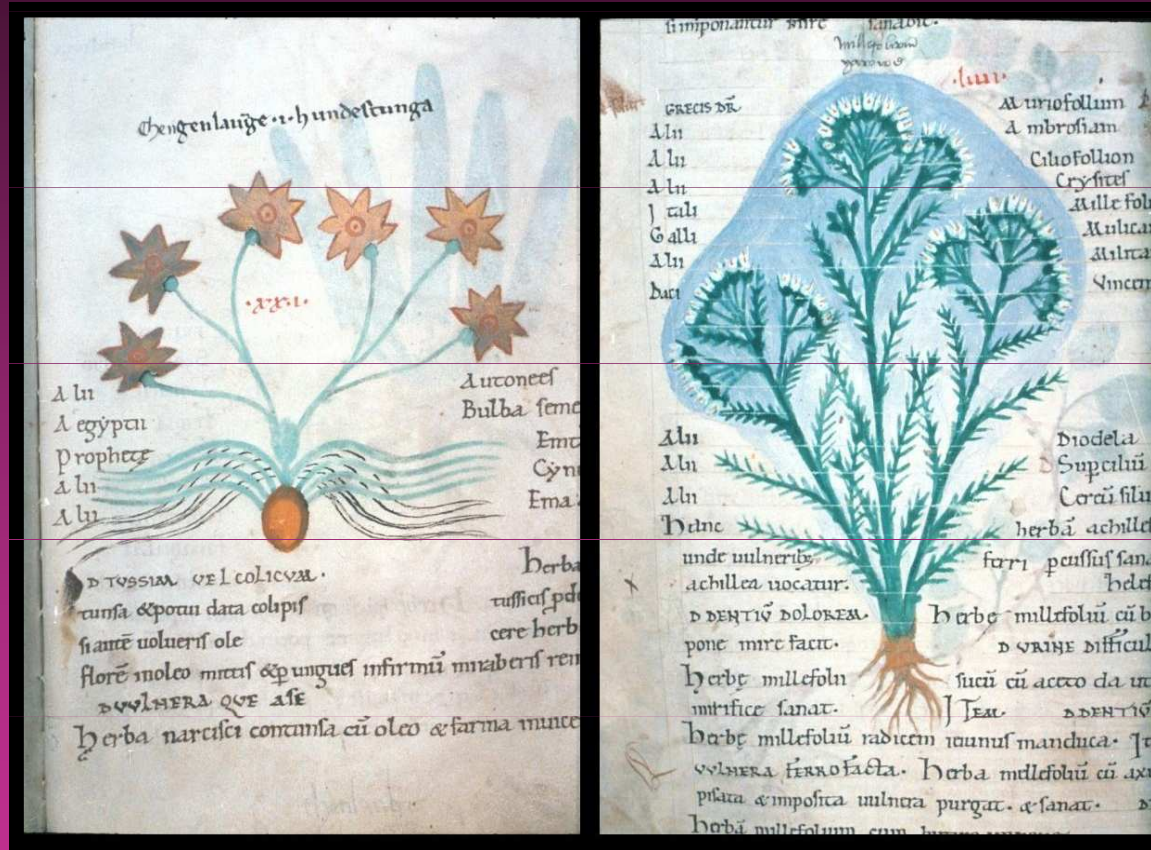 Gengenlauge · i · hundestunga
· XXI ·
Alii
Aegyptii
Prophete
Alii
Alii
Autonees
Bulba seme
Emt
Cyn
Ema
Herba
D TUSSIM VEL COLICUM ·
tunsa & potui data
tussicis
si autē volueris ole
cere herb
florē in oleo mittis & unguef infirmū miraberis rem
D VULNERA QUE
Herba narcisci contunsa cū oleo & farina
si imponantur mire sanabit ·
millefolium
yarowe
· LIIII ·
GRECIS DR̄
Muriofollum
Alii
Ambrosiam
Alii
Ciliofollion
Alii
Crysites
Itali
Mille foli
Galli
Mulicar
Alii
Militar
Daci
Vincen
Alii
Diodela
Alii
Supciliū
Alii
Cercū filu
Hanc
herbā achillef
unde vulnerib;
ferri pcussus san
achillea uocatur.
D DENTIŪ DOLOREM.
Herbe millefoliū cū b
pone mire facit.
D URINE DIFFICUL
Herbe millefolii
sucū cū aceto da ut
mirifice sanat.
ITEM. D DENTIŪ
Herbe millefoliū radicem ieiunus manduca. It
VULNERA FERRO FACTA. Herba millefoliū cū axu
pisata & imposita uulnera purgat. & sanat.
Herbā millefolium cum